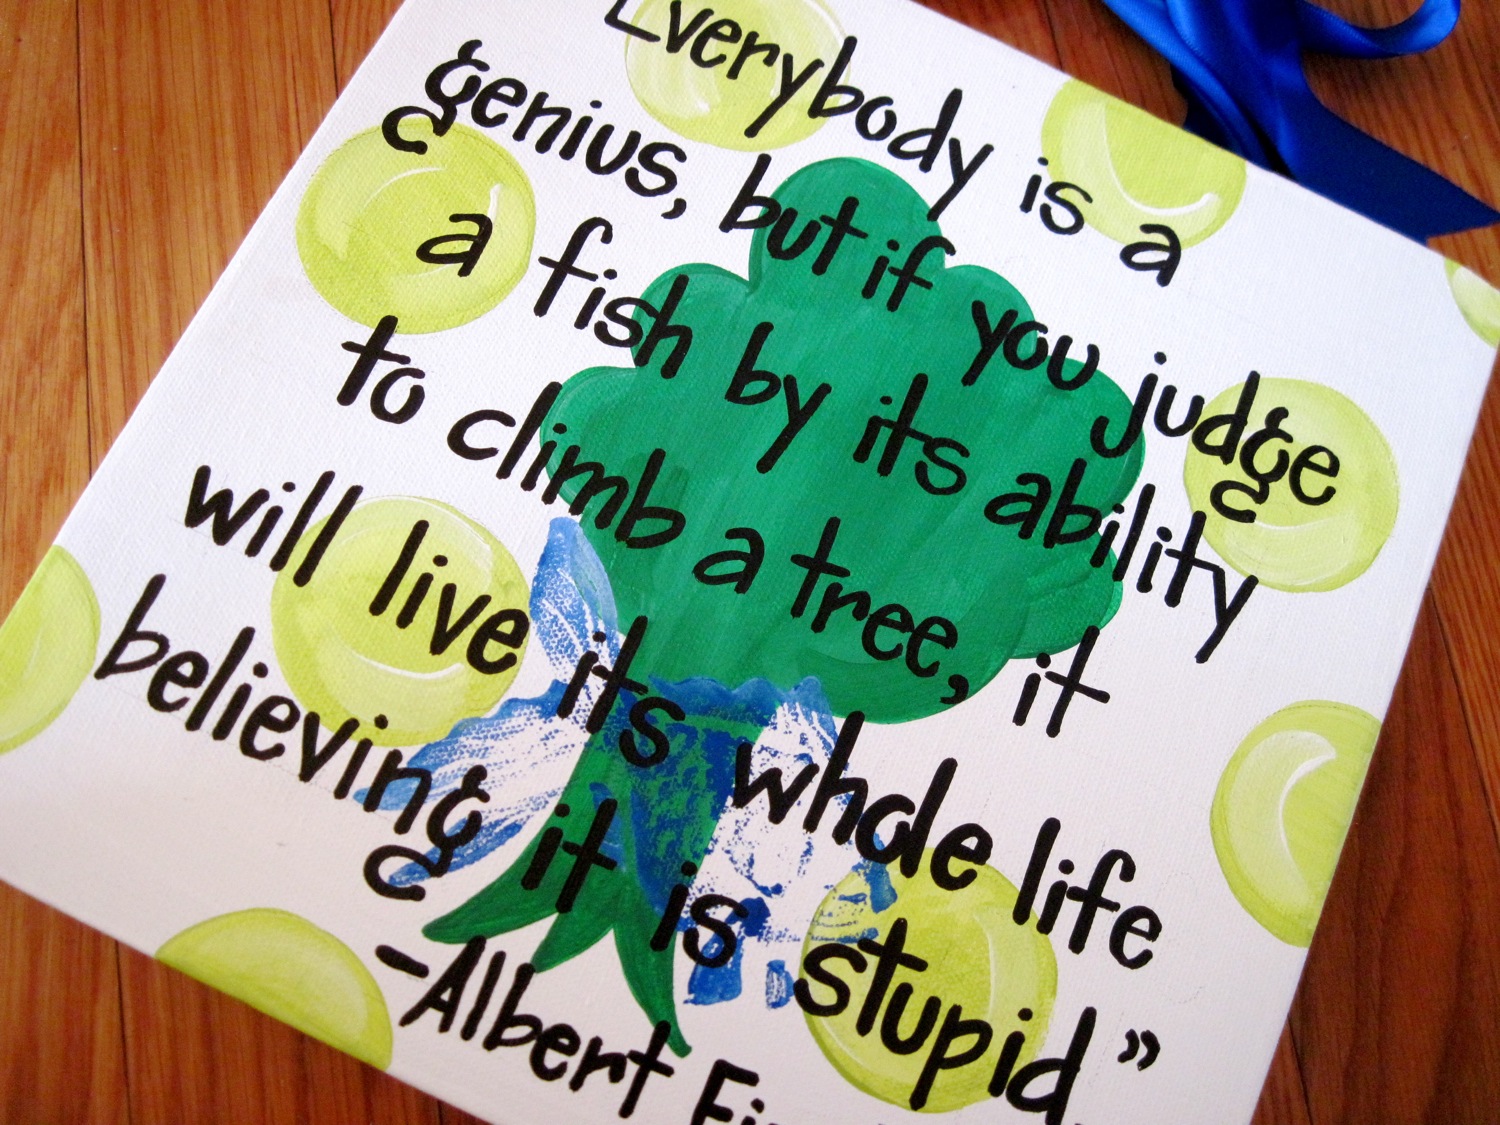 Everybody is a
genius, but if you judge
a fish by its ability
to climb a tree, it
will live its whole life
believing it is stupid”
-Albert